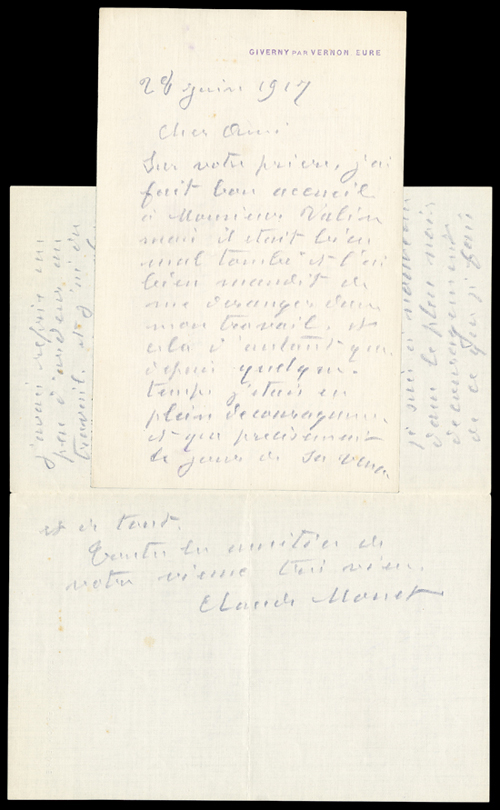 GIVERNY PAR VERNON EURE
28 juin 1917
Cher Ami
Sur votre prière, j'ai
fait bon accueil
à Monsieur
mais il était bien
mal tombé et l'ai
bien maudit de
me déranger dans
mon travail, et
cela d'autant que
depuis quelque
temps j'étais en
plein découragement
et que précisément
le jour de sa venue
j'avais repris un
peu d'ardeur au
travail
je suis à nouveau
dans le plus noir
découragement
de ce que je fais
et de tout.
Toutes les amitiés de
votre vieux très vieux.
Claude Monet